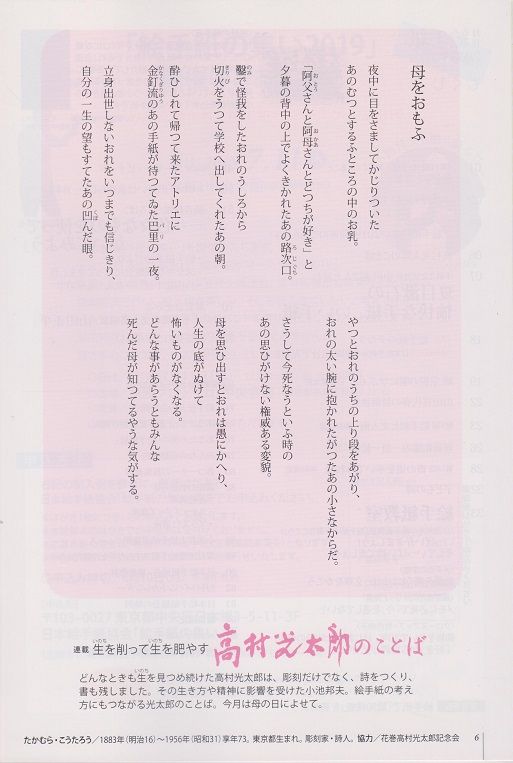 母をおもふ
夜中に目をさましてかじりついた
あのむつとするふところの中のお乳。
「阿父さんと阿母さんとどつちが好き」と
夕暮の背中の上でよくきかれたあの路次口。
鑿で怪我をしたおれのうしろから
切火をうつて学校へ出してくれたあの朝。
酔ひしれて帰つて来たアトリエに
金釘流のあの手紙が待つてゐた巴里の一夜。
立身出世しないおれをいつまでも信じきり、
自分の一生の望もすてたあの凹んだ眼。
やつとおれのうちの上り段をあがり、
おれの太い腕に抱かれたがつたあの小さなからだ。
さうして今死なうといふ時の
あの思ひがけない権威ある変貌。
母を思ひ出すとおれは愚にかへり、
人生の底がぬけて
怖いものがなくなる。
どんな事があらうともみんな
死んだ母が知つてるやうな気がする。
連載 生を削って生を肥やす 高村光太郎のことば
どんなときも生を見つめ続けた高村光太郎は、彫刻だけでなく、詩をつくり、
書も残しました。その生き方や精神に影響を受けた小池邦夫。絵手紙の考え
方にもつながる光太郎のことば。今月は母の日によせて。
たかむら・こうたろう／1883年(明治16)～1956年(昭和31)享年73。東京都生まれ。彫刻家・詩人。協力／花巻高村光太郎記念会 6